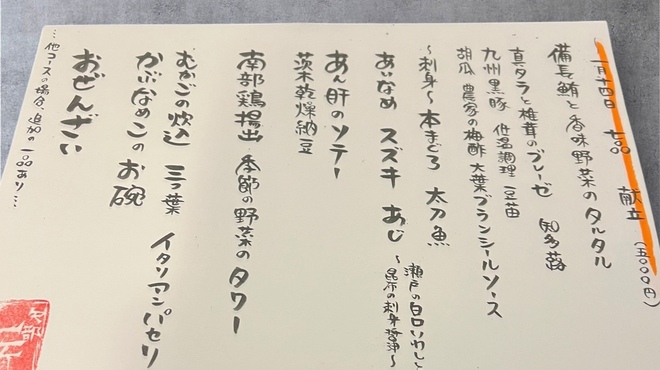 一月十四日 七:〇〇 献立 (五〇〇〇円)
備長鮪と香味野菜のタルタル
真タラと椎茸のブレーゼ 知多蕗
九州黒豚 低温調理 豆苗
胡瓜 農家の梅酢 大葉ブランシールソース
〜刺身〜 本まぐろ 太刀魚
あいなめ スズキ あじ
瀬戸の白口いわしと
〜昆布の刺身醤油〜
あん肝のソテー
茨木乾燥納豆
南部鶏揚出 季節の野菜のタワー
むかごの炊込 三つ葉 イタリアンパセリ
かぶなめこのお碗
おぜんざい
…他コースの場合、追加の一品あり…